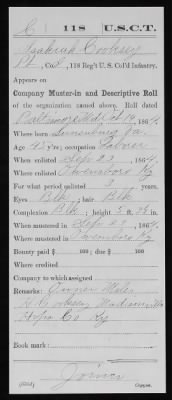 C | 118 | U.S.C.T.
Isabiah Cooksey
Pt., Co. I, 118 Reg't U. S. Col'd Infantry.
Appears on
Company Muster-in and Descriptive Roll
of the organization named above. Roll dated
Baltimore Md. Oct 19, 1864.
Where born Va.
Age 43 y'rs; occupation Laborer
When enlisted Sep 22, 1864.
Where enlisted Owensboro Ky
For what period enlisted 3 years.
Eyes Blk; hair Blk
Complexion Blk; height 5 ft. in.
When mustered in Sep 22, 1864.
Where mustered in Owensboro Ky
Bounty paid $ 100; due $ 100
Where credited
Company to which assigned
Remarks: Owner Miles
H. Cooksey Madisonville
Hopn Co Ky
Book mark:
Joiner
(352d) Copyist.